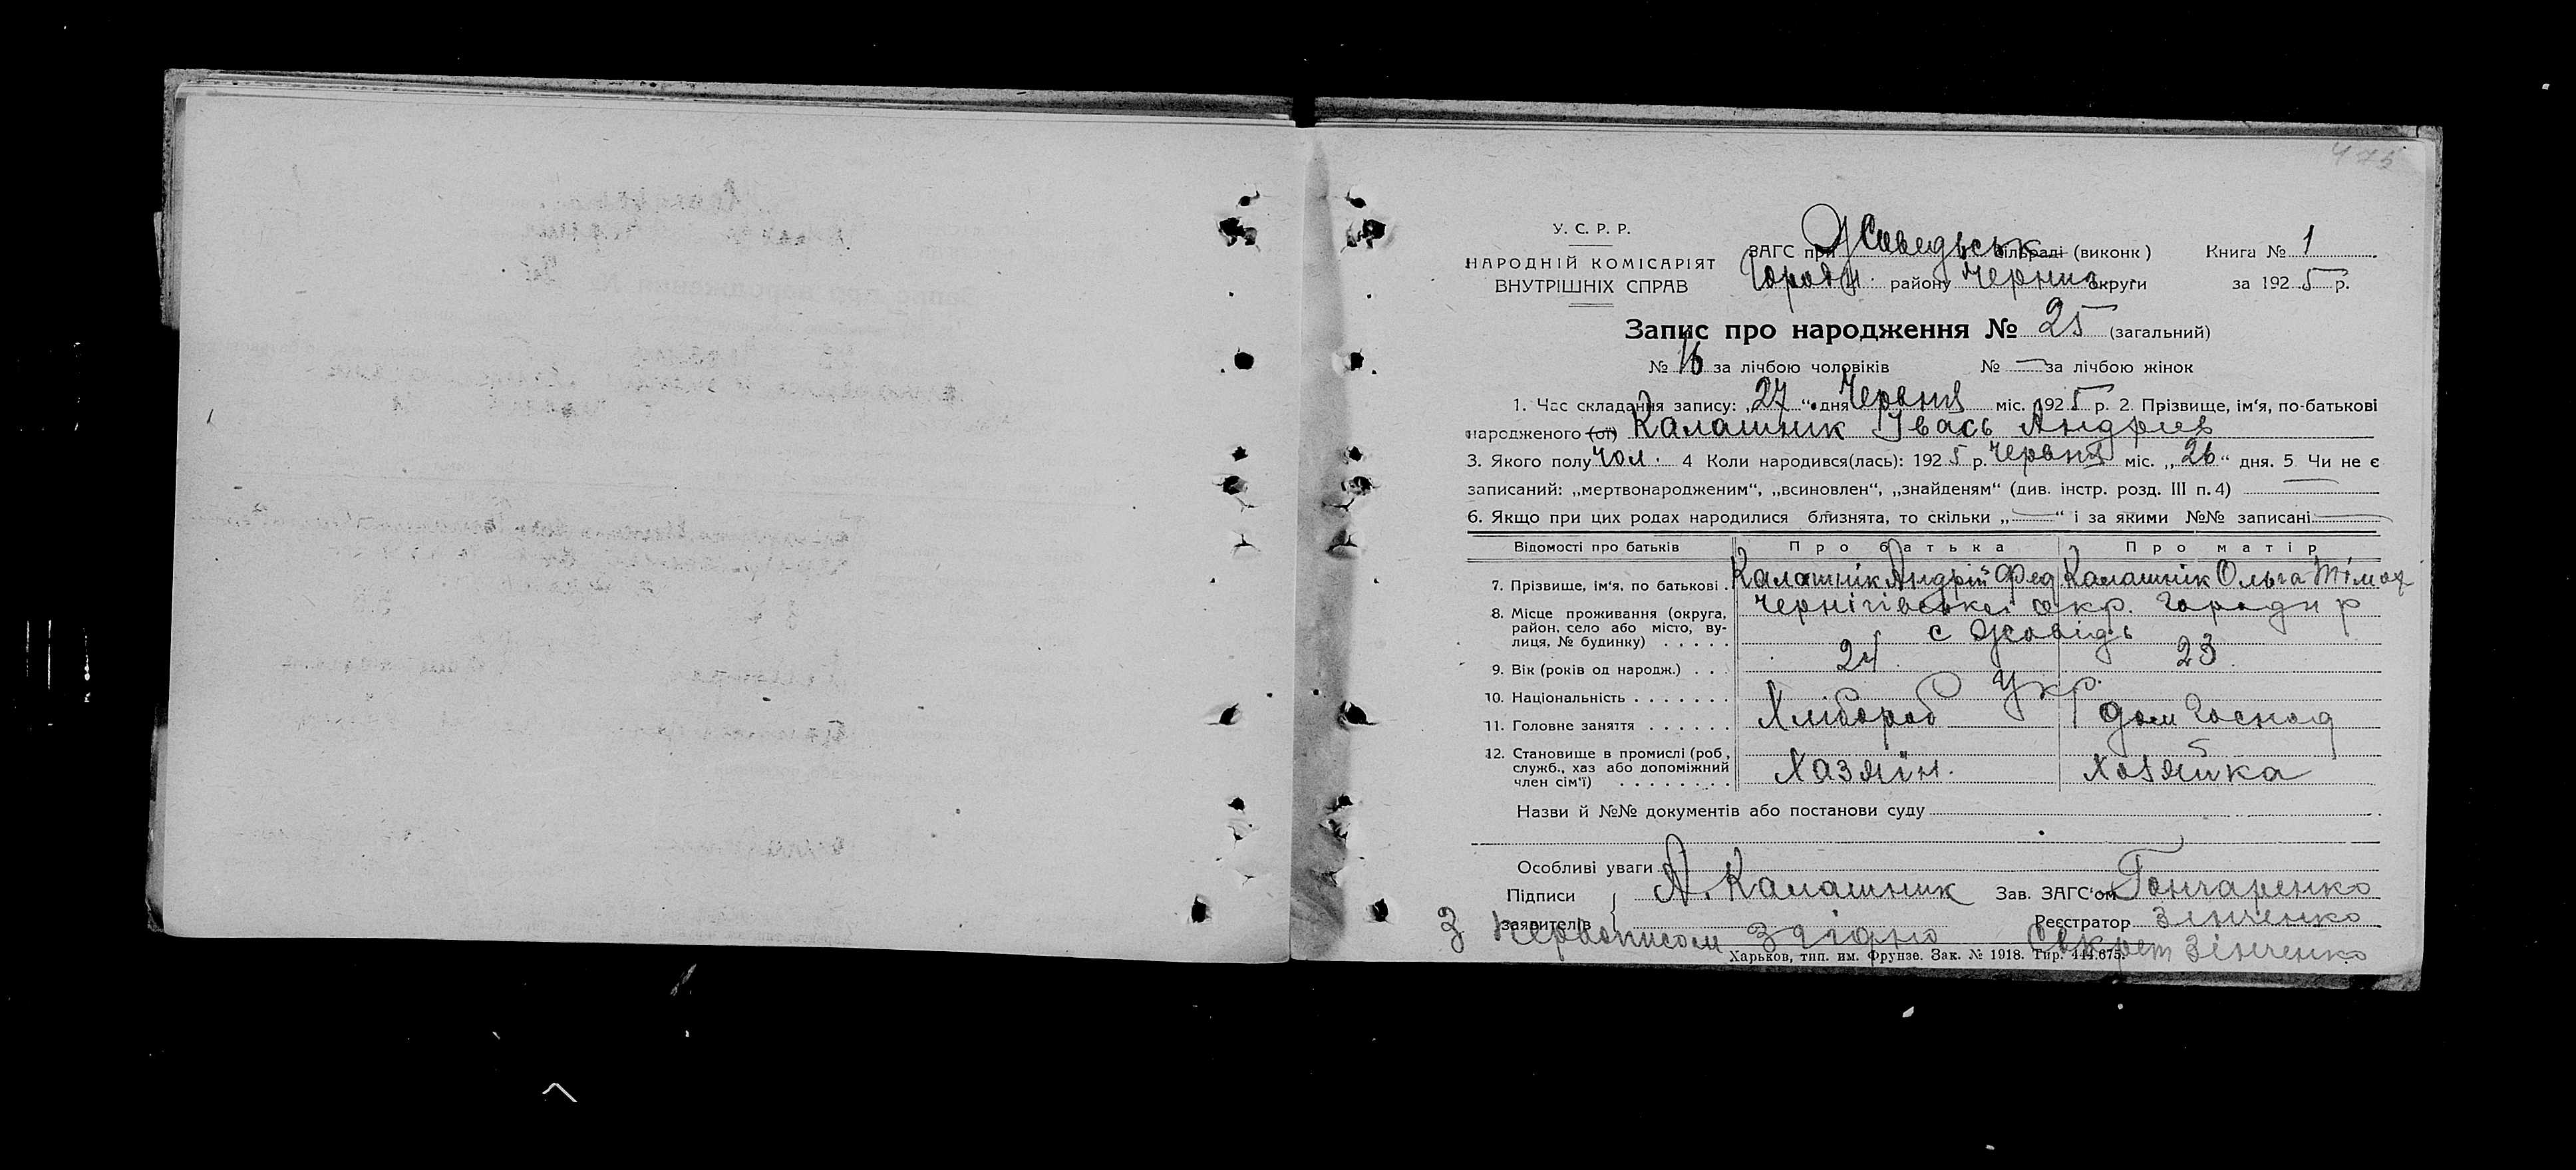 475
У. С. Р. Р.
НАРОДНІЙ КОМІСАРІЯТ
ВНУТРІШНІХ СПРАВ
ЗАГС при Жаведьськ сільраді (виконк) Книга № 1
Городн. району Черниг округи за 1925 р.
Запис про народження № 25 (загальний)
№ 16 за лічбою чоловіків № — за лічбою жінок
1. Час складання запису: „27“ дня Червня міс. 1925 р. 2. Прізвище, ім'я, по-батькові
народженого (ої) Калашник Івась Андріев
3. Якого полу чол. 4 Коли народився(лась): 1925 р. Червня міс. „26“ дня. 5 Чи не є
записаний: „мертвонародженим“, „всиновлен“, „знайденям“ (див. інстр. розд. III п. 4) —
6. Якщо при цих родах народилися близнята, то скільки „—“ і за якими №№ записані —
Відомості про батьків Про батька Про матір
7. Прізвище, ім'я, по батькові. Калашнік Андрій Фед Калашнік Ольга Тімох
8. Місце проживання (округа, район, село або місто, вулиця, № будинку) Чернігівської окр. Городн р
с Жавідь
9. Вік (років од народж.) 24 23
10. Національність Укр.
11. Головне заняття Хлібороб дом Господ
12. Становище в промислі (роб., служб., хаз або допоміжний член сім'ї) Хазяїн. Хозяйка
Назви й №№ документів або постанови суду
Особливі уваги
Підписи заявителів А. Калашник Зав. ЗАГС'ом Гончаренко
Реєстратор Зінченко
З первописом згідно Секрет Зінченко
Харьков, тип. им. Фрунзе. Зак. № 1918. Тир. 444.675.